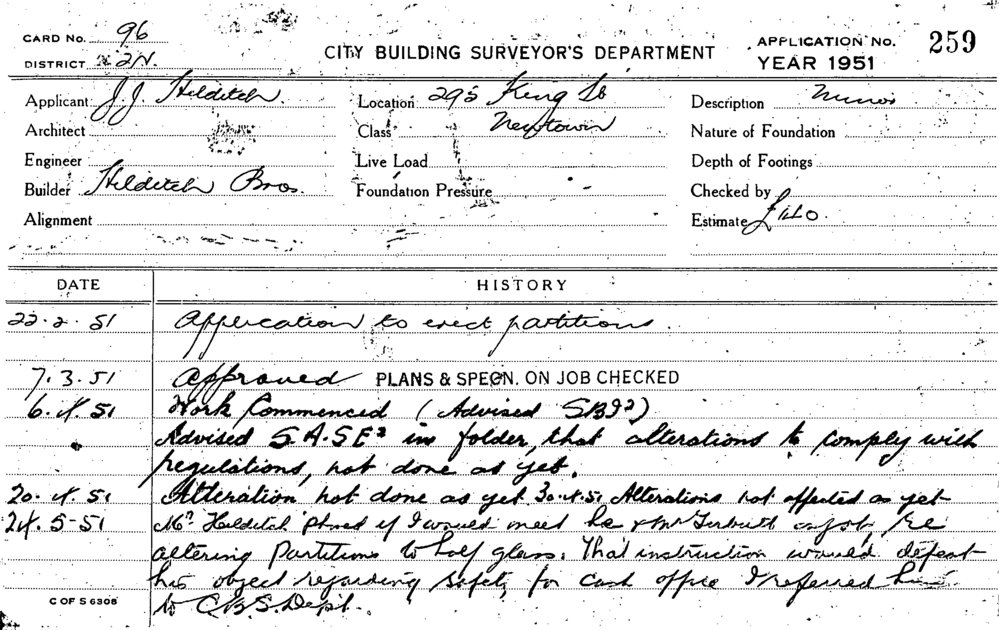 CARD No. 96
DISTRICT 2N.
CITY BUILDING SURVEYOR'S DEPARTMENT
APPLICATION No. 259
YEAR 1951
Applicant J. J. Hilditch.
Location 295 King St
Description Minor
Architect
Class Newtown
Nature of Foundation
Engineer
Live Load
Depth of Footings
Builder Hilditch Bros.
Foundation Pressure
Checked by
Alignment
Estimate
DATE HISTORY
22.2.51 Application to erect partitions.
7.3.51 Approved PLANS & SPECN. ON JOB CHECKED
6.4.51 Work Commenced (Advised
Advised in folder, that alterations to comply with
regulations, not done as yet.
20.4.51 Alteration not done as yet 30.4.51 Alterations not affected as yet
24.5.51 Mr Hilditch phned if I would meet he & Mr on job, re
altering Partitions to half glass. That instruction would defeat
his object regarding safety for cash office I referred him
to C.B.S. Dept.
C OF S 6308